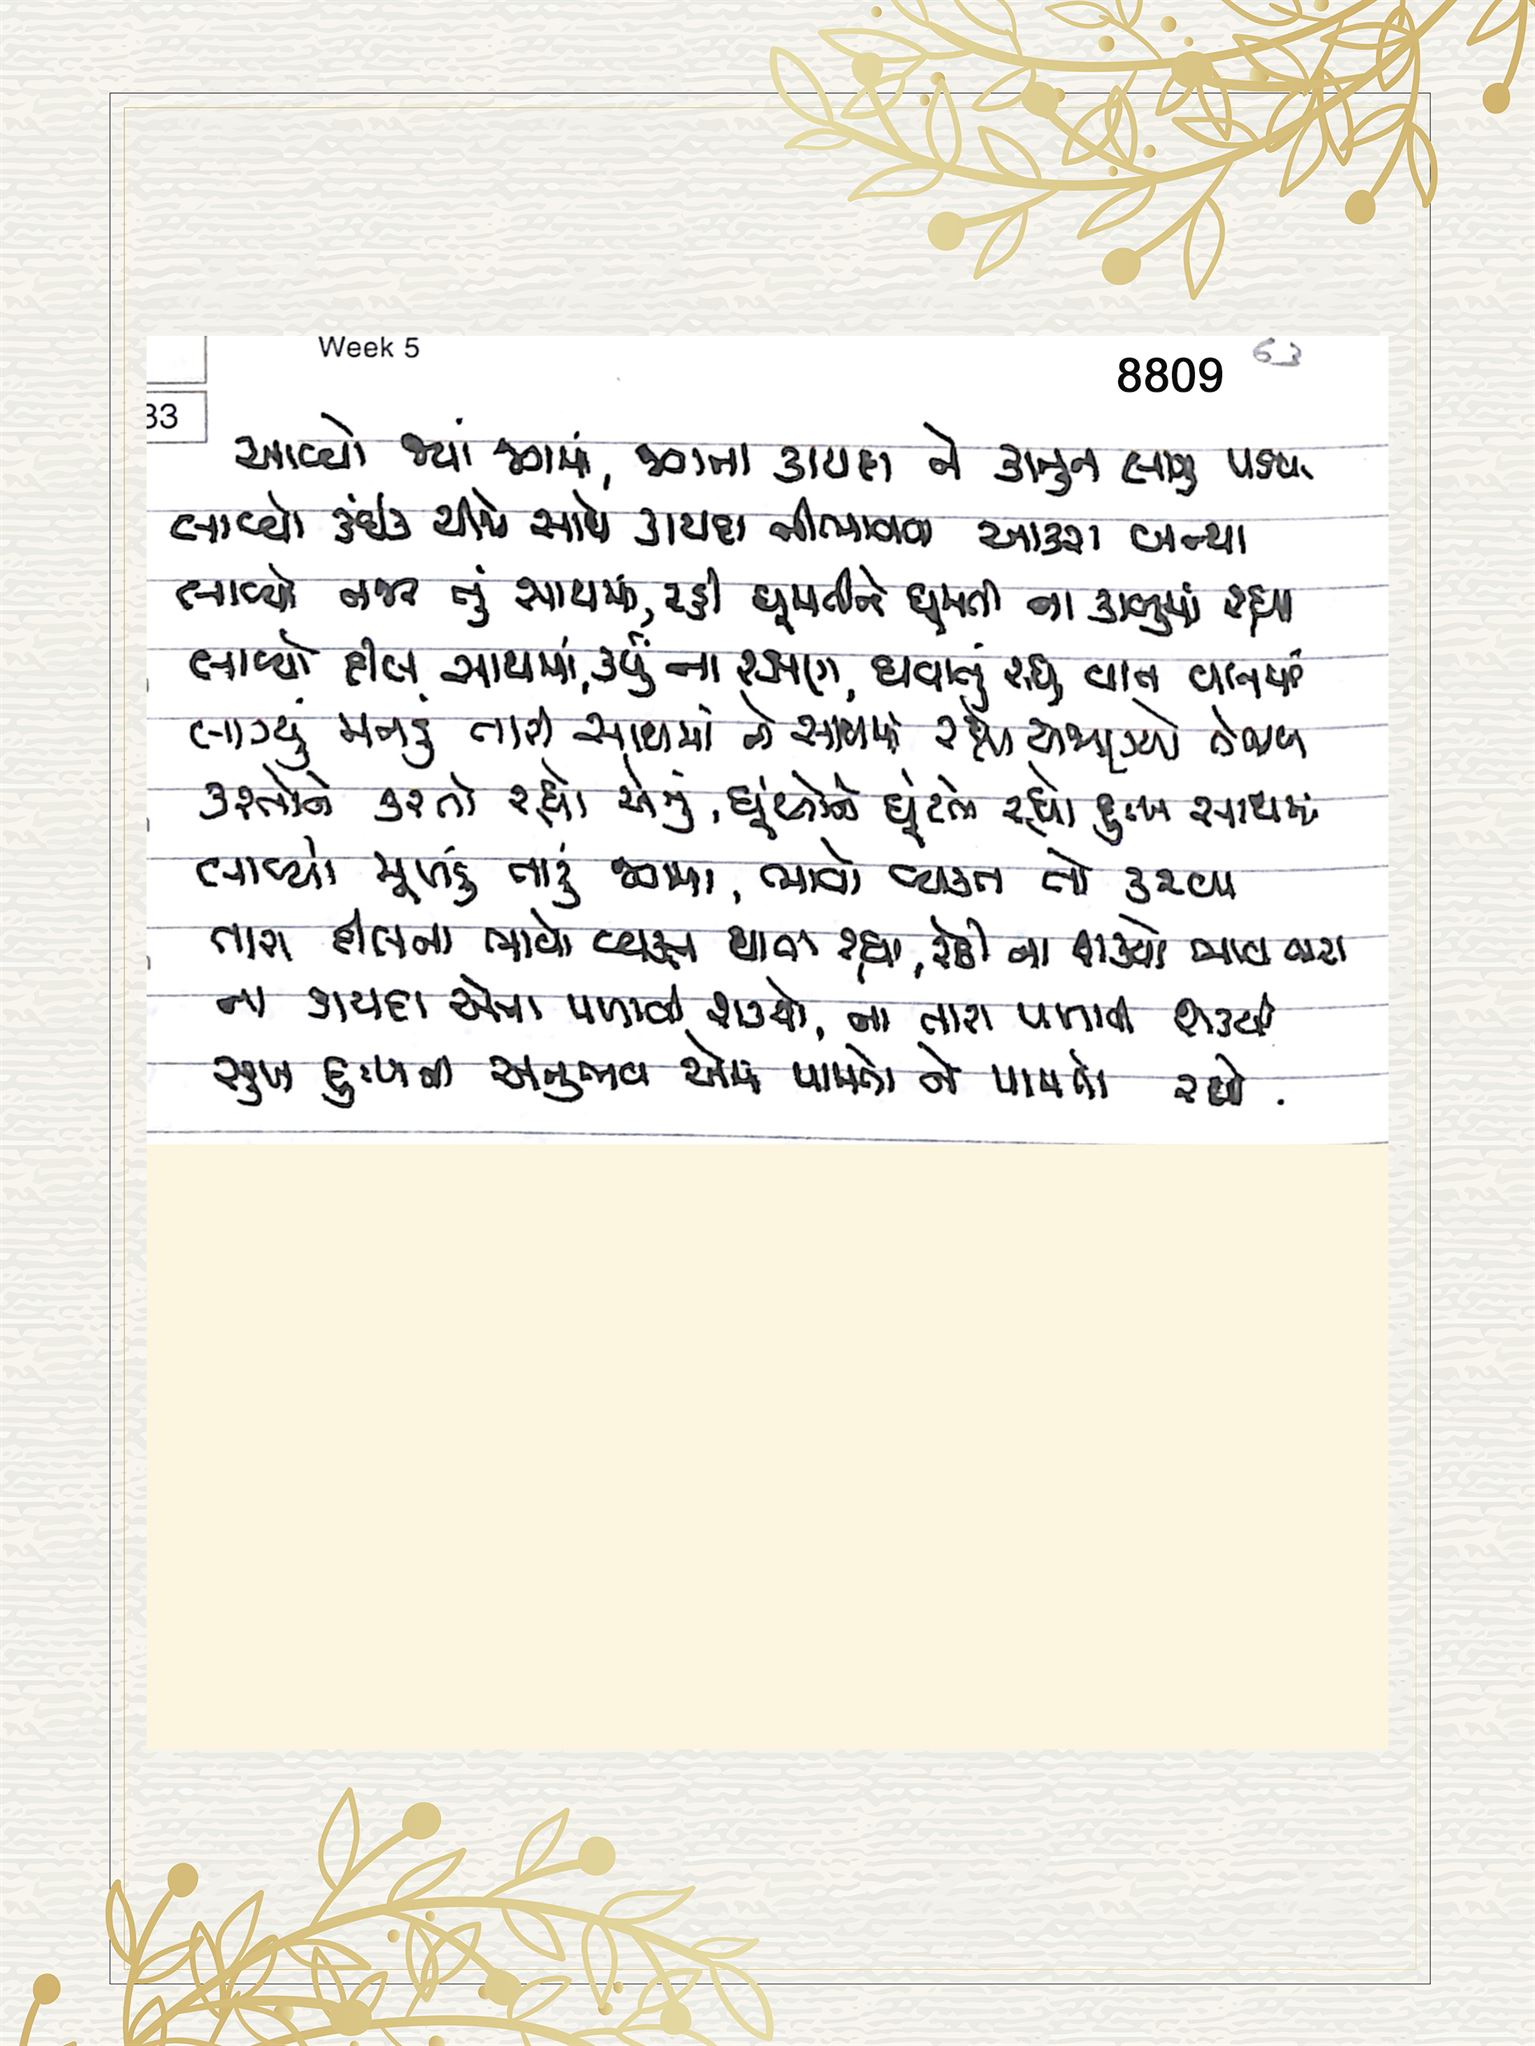 Week 5
8809 63
33
આવ્યો જ્યાં જગમાં, જગના કાયદા ને કાનુન લાગુ પડયા
લાવ્યો કંઈક ચીજો સાથે કાયદા નીભાવવા આકરા બન્યા
લાવ્યો નજર તું સાથમાં, રહી ઘૂમતીને ઘૂમતી ના કાબુમાં રહ્યા
લાવ્યો દીલ સાથમાં, કર્યું ના રક્ષણ, થવાનું રહ્યું
લાગ્યું મનડું તારી સાથમાં ને સાથમાં
કરતોને કરતો રહ્યો એનું, ઘૂંટતો રહ્યો દુઃખ સાથમાં
લાવ્યો મૂખડું તારું જગમાં, ભાવો વ્યક્ત તો કરવા
તારા દીલના ભાવો વ્યક્ત થાતા રહ્યા, રોકી ના શક્યો ભાવ તારા
ના કાયદા એના પળાવી શક્યો, ના તારા પળાવી શક્યો
સુખ દુઃખનો અનુભવ એમ પામતો ને પામતો રહ્યો.